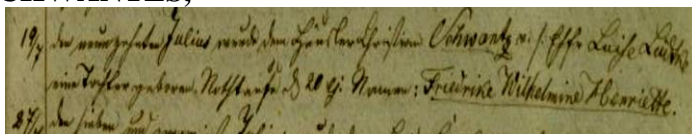 CHWANTES,
19/7 den neunzehnten Julius wurde dem Häusler Christian Schwantz u. s. Ehfr Luise Lüdtke
eine Tochter geboren. Nothtaufe d 20 ej. Namen: Friedrike Wilhelmine Henriette.
27/7 den sieben und zwanzigst Julius